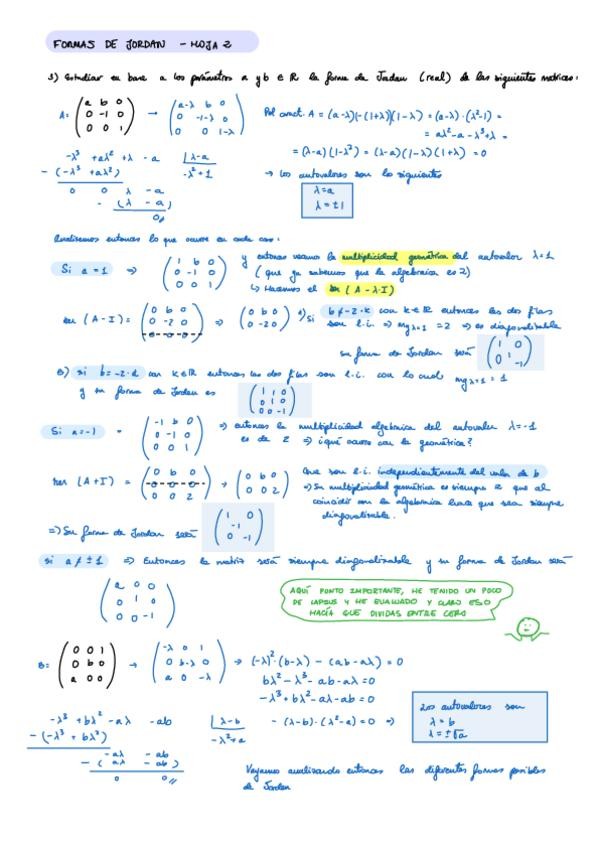 FORMAS DE JORDAN - HOJA 2
3) Estudiar en base a los parámetros a y b ∈ R la forma de Jordan (real) de las siguientes matrices:
A = (a b 0; 0 -1 0; 0 0 1) → (a-λ b 0; 0 -1-λ 0; 0 0 1-λ) Pol caract. A = (a-λ)(-(1+λ))(1-λ) = (a-λ)·(λ²-1) =
= aλ²-a-λ³+λ =
= (λ-a)(1-λ²) = (λ-a)(1-λ)(1+λ) = 0
-λ³ +aλ² +λ -a | λ-a
- (-λ³ +aλ²) -λ²+1
0 0 λ -a
- (λ -a)
0//
→ Los autovalores son los siguientes
λ=a
λ=±1
Analicemos entonces lo que ocurre en cada caso:
Si a=1 ⇒ (1 b 0; 0 -1 0; 0 0 1) y entonces veamos la multiplicidad geométrica del autovalor λ=1
(que ya sabemos que la algebraica es 2)
↳ Hacemos el ker (A-λ·I)
ker (A-I) = (0 b 0; 0 -2 0; 0 0 0) ⇒ (0 b 0; 0 -2 0) A) Si b≠-2·k con k∈R entonces las dos filas
son l.i. ⇒ mg λ=1 = 2 ⇒ es diagonalizable
su forma de Jordan será (1 0; 1; 0 -1)
B) si b=-2·k con k∈R entonces las dos filas son l.i. con lo cual mg λ=1 = 1
y su forma de Jordan es (1 1 0; 0 1 0; 0 0 -1)
Si a=-1 (-1 b 0; 0 -1 0; 0 0 1) ⇒ entonces la multiplicidad algebraica del autovalor λ=-1
es de 2 ⇒ ¿qué ocurre con la geométrica?
ker (A+I) = (0 b 0; 0 0 0; 0 0 2) → (0 b 0; 0 0 2) Que son l.i. independientemente del valor de b
⇒ Su multiplicidad geométrica es siempre 2 que al
coincidir con la algebraica hará que sea siempre
diagonalizable.
⇒ Su forma de Jordan será (1 0; -1; 0 -1)
si a≠±1 ⇒ Entonces la matriz será siempre diagonalizable y su forma de Jordan será
(a 0 0; 0 1 0; 0 0 -1)
AQUÍ PUNTO IMPORTANTE, HE TENIDO UN POCO
DE LAPSUS Y HE EVALUADO Y CLARO ESO
HACÍA QUE DIVIDAS ENTRE CERO
B = (0 0 1; 0 b 0; a 0 0) → (-λ 0 1; 0 b-λ 0; a 0 -λ) → (-λ)²·(b-λ) - (ab-aλ) = 0
bλ²-λ³-ab-aλ = 0
-λ³+bλ²-aλ-ab = 0
- (λ-b)·(λ²-a) = 0 ⇒
Los autovalores son
λ = b
λ = ±√a
-λ³ +bλ² -aλ -ab | λ-b
- (-λ³ +bλ²) -λ²+a
-aλ -ab
- (aλ -ab)
0 0//
Vayamos analizando entonces las diferentes formas posibles
de Jordan